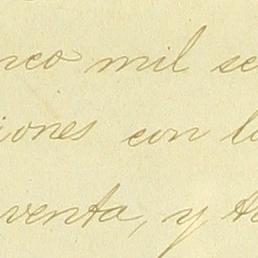 nco mil se
iones con l
venta, y t